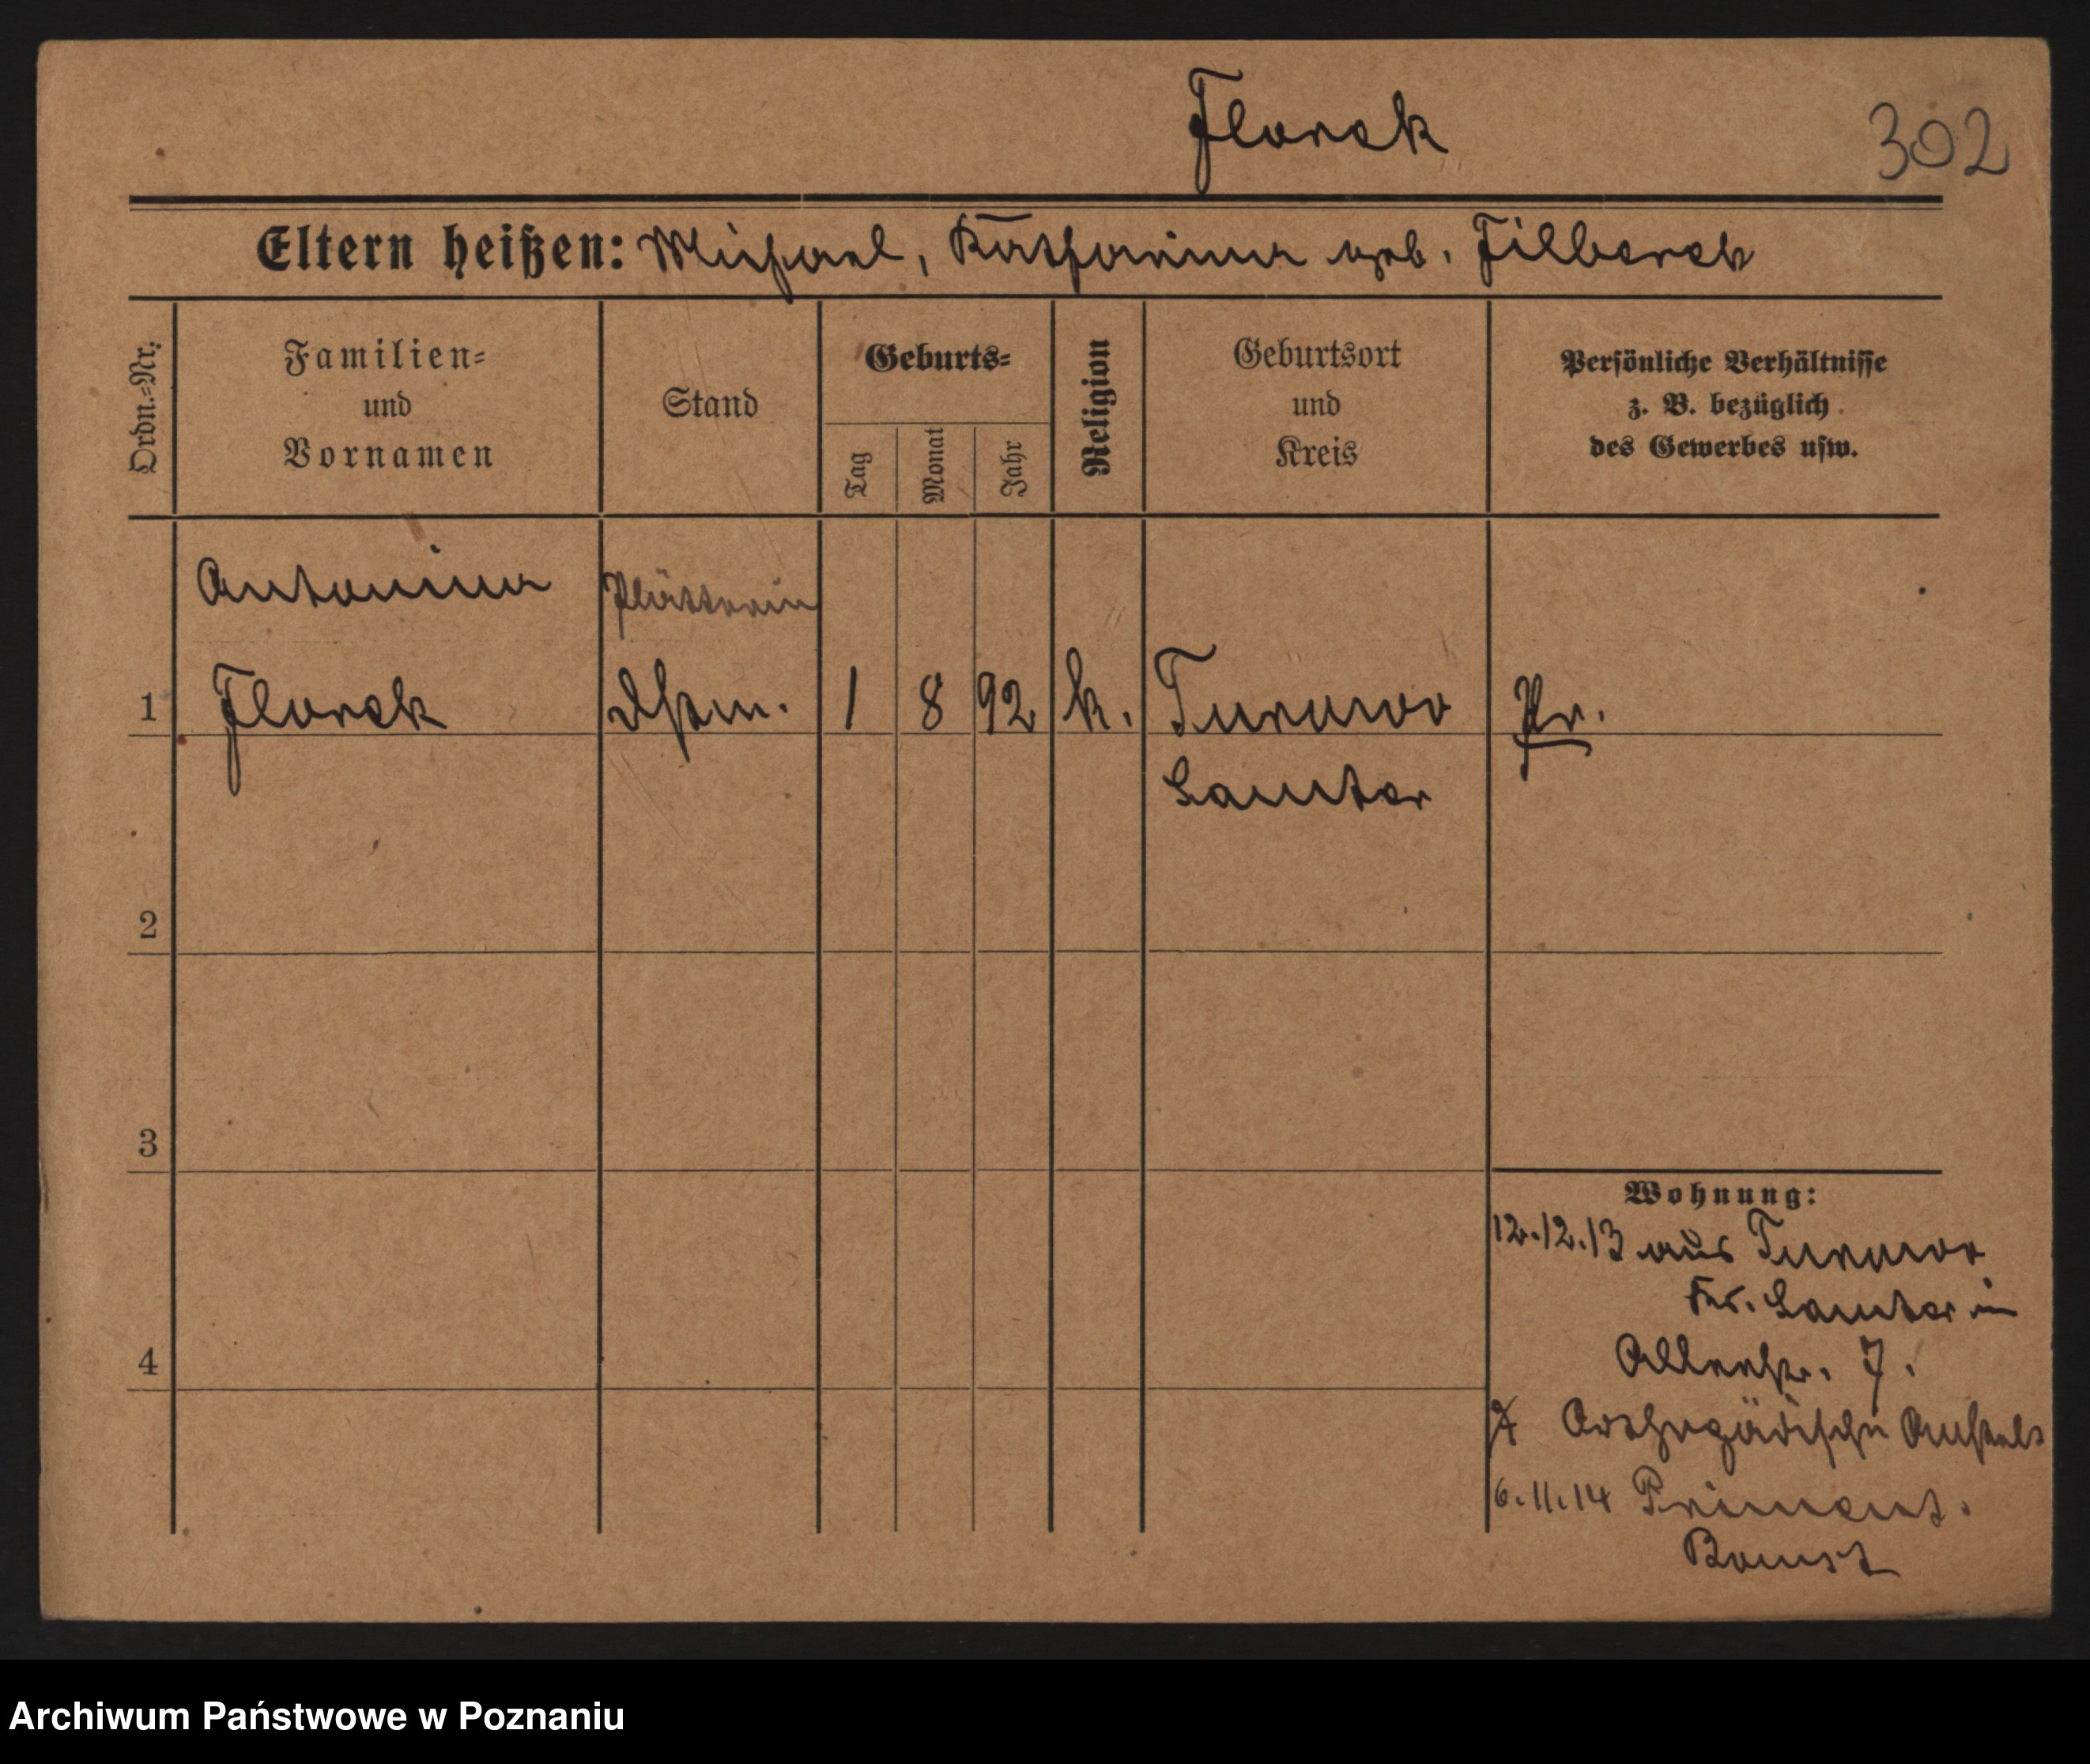 Florek
302
Eltern heißen: Michael, Katharina geb. Filberek
Ordn.=Nr.
Familien=
und
Vornamen
Stand
Geburts=
Tag
Monat
Jahr
Religion
Geburtsort
und
Kreis
Persönliche Verhältnisse
z. B. bezüglich
des Gewerbes usw.
Antonina
Plätterin
1 Florek Dstm. 1 8 92 k. Turowo Pr.
Samter
2
3
4
Wohnung:
12.12.13 aus Turowo
Krs. Samter in
Allerhlgr. 7.
Orthopädische Anstalt
6.11.14 Priment.
Bomst
Archiwum Państwowe w Poznaniu